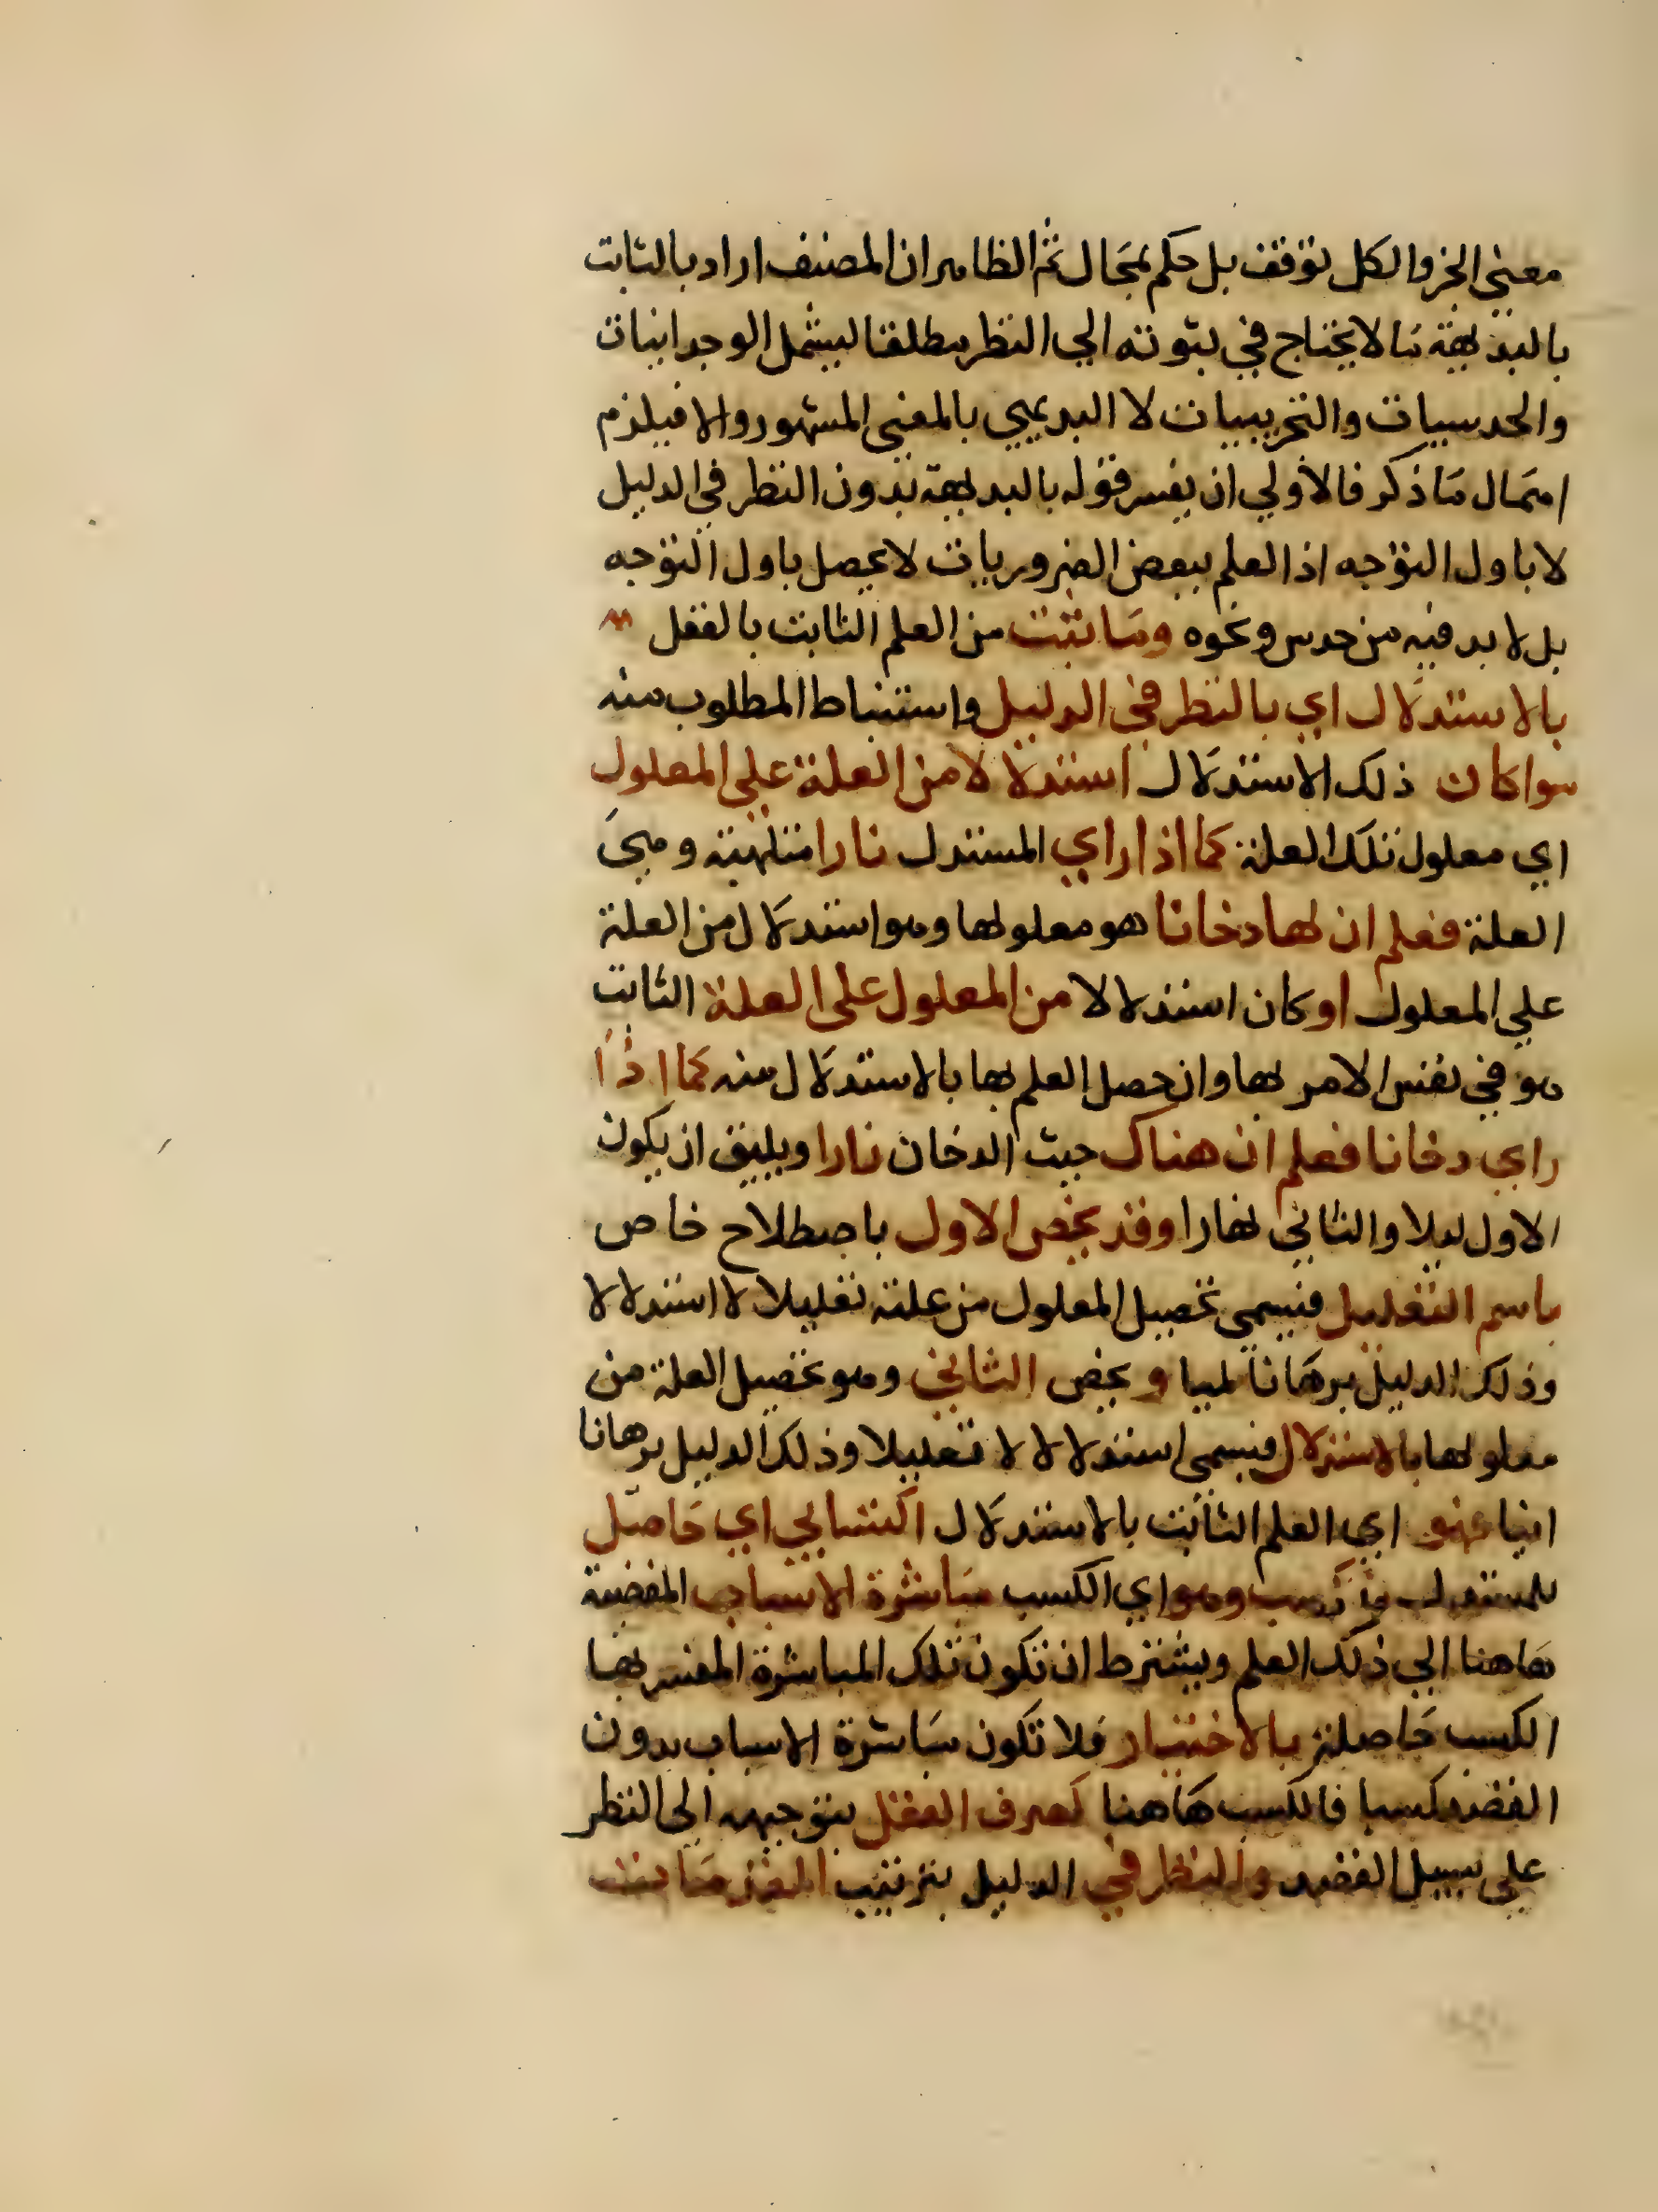 معني الجز والكل توقف بل حكم بمجال ثم الظاهر ان المصنف اراد بالثابت
بالبديهة ما لا يحتاج في ثبوته الي النظر مطلقا ليشمل الوجدانيات
والحدسيات والتجريبيات لا البديهي بالمعنى المشهور والا فيلزم
اهمال ما ذكر فالاولي ان يفسر قوله بالبديهة بدون النظر في الدليل
لا باول التوجه اذ العلم ببعض الضروريات لا يحصل باول التوجه
بل لا بد فيه من حدس ونحوه وما ثبت من العلم الثابت بالعقل
بالاستدلال اي بالنظر في الدليل واستنباط المطلوب منه
سوا كان ذلك الاستدلال استدلالا من العلة علي المعلول
اي معلول تلك العلة كما اذا راي المستدل نارا ملتهبة وهي
العلة فعلم ان لها دخانا هو معلولها وهو استدلال من العلة
علي المعلول او كان استدلالا من المعلول على العلة الثابت
هو في نفس الامر بها وان حصل العلم بها بالاستدلال منه كما اذا
راي دخانا فعلم ان هناك حيث الدخان نارا ويليق ان يكون
الاول ليلا والثاني نهارا وقد يخص الاول باصطلاح خاص
باسم التعليل فيسمى تحصيل المعلول من علته تعليلا لا استدلالا
وذلك الدليل برهانا لميا ويخص الثاني وهو تحصيل العلة من
معلولها بالاستدلال فيسمى استدلالا لا تعليلا وذلك الدليل برهانا
انيا فهو اي العلم الثابت بالاستدلال اكتسابي اي حاصل
للمستدل بالكسب وهو اي الكسب مباشرة الاسباب المفضية
هاهنا الي ذلك العلم ويشترط ان تكون تلك المباشرة المفسر بها
الكسب حاصلة بالاختيار فلا تكون مباشرة الاسباب بدون
القصد كسبا فالكسب هاهنا كصرف العقل بتوجيهه الى النظر
على سبيل القصد والنظر في الدليل بترتيب المقدمات